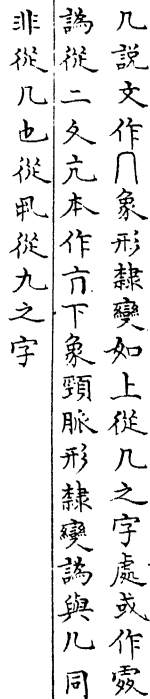 几說文作∩象形隸變如上從几之字處或作䖏
譌從二夂亢本作亣下象頸脈形隸變譌與几同
非從几也從丮從九之字